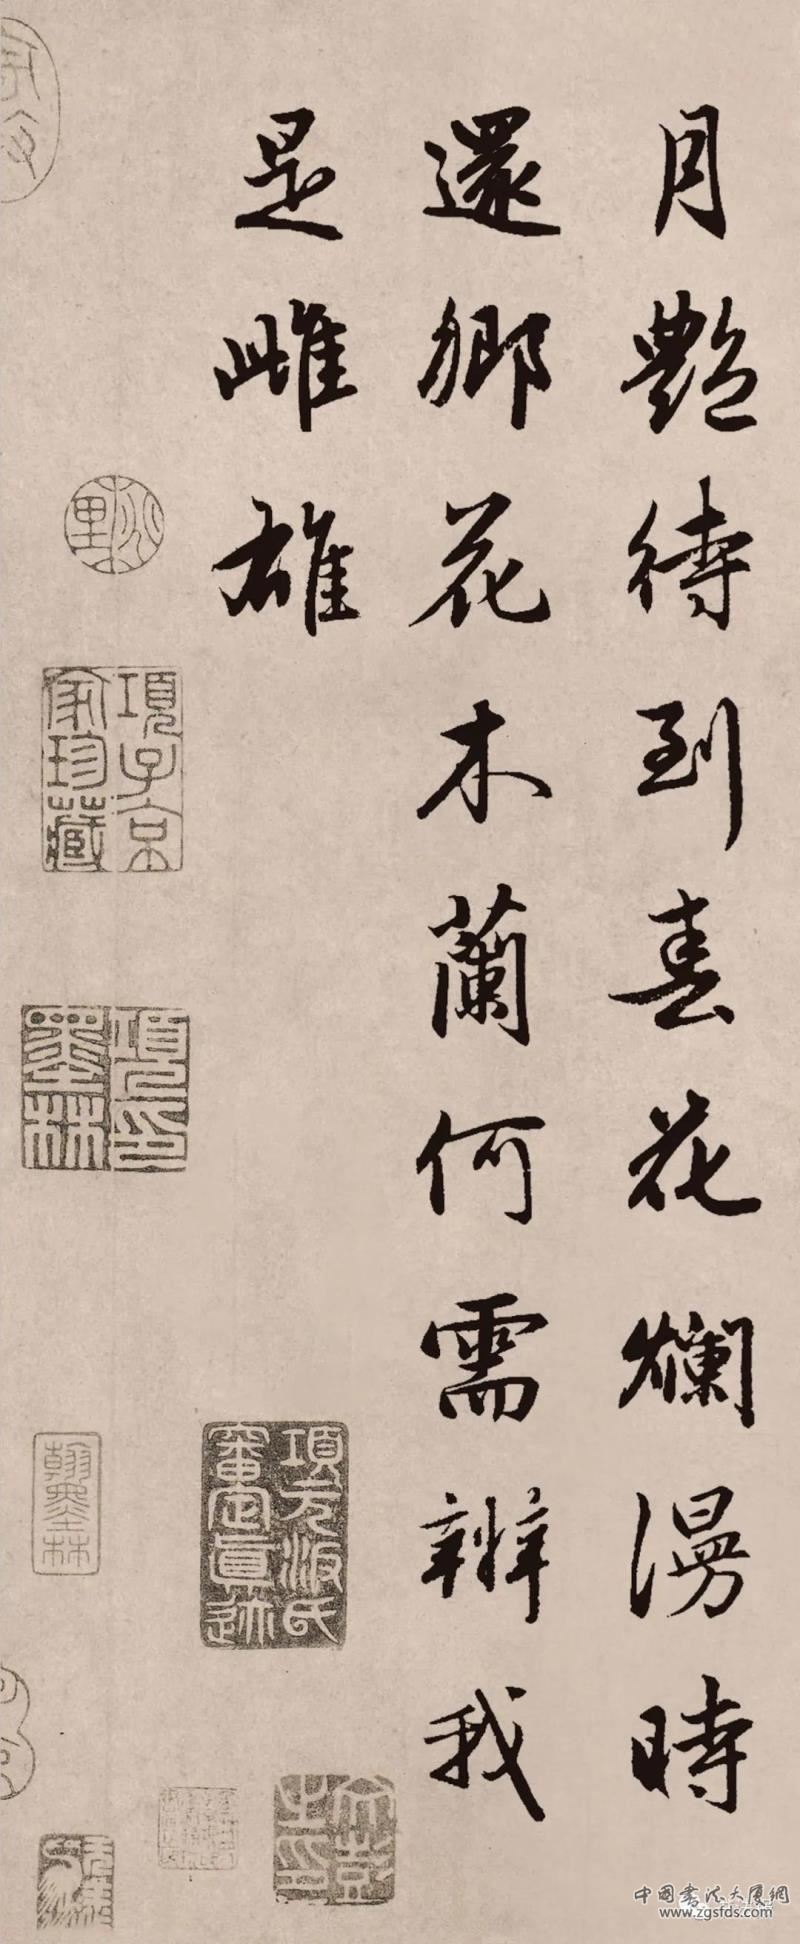 月艷待到春花爛漫時
還鄉花木蘭何需辨我
是雌雄
項子京家珍藏
項元汴氏審定真跡
項氏墨林
翰墨林
中國書法大廈網
www.zgsfds.com